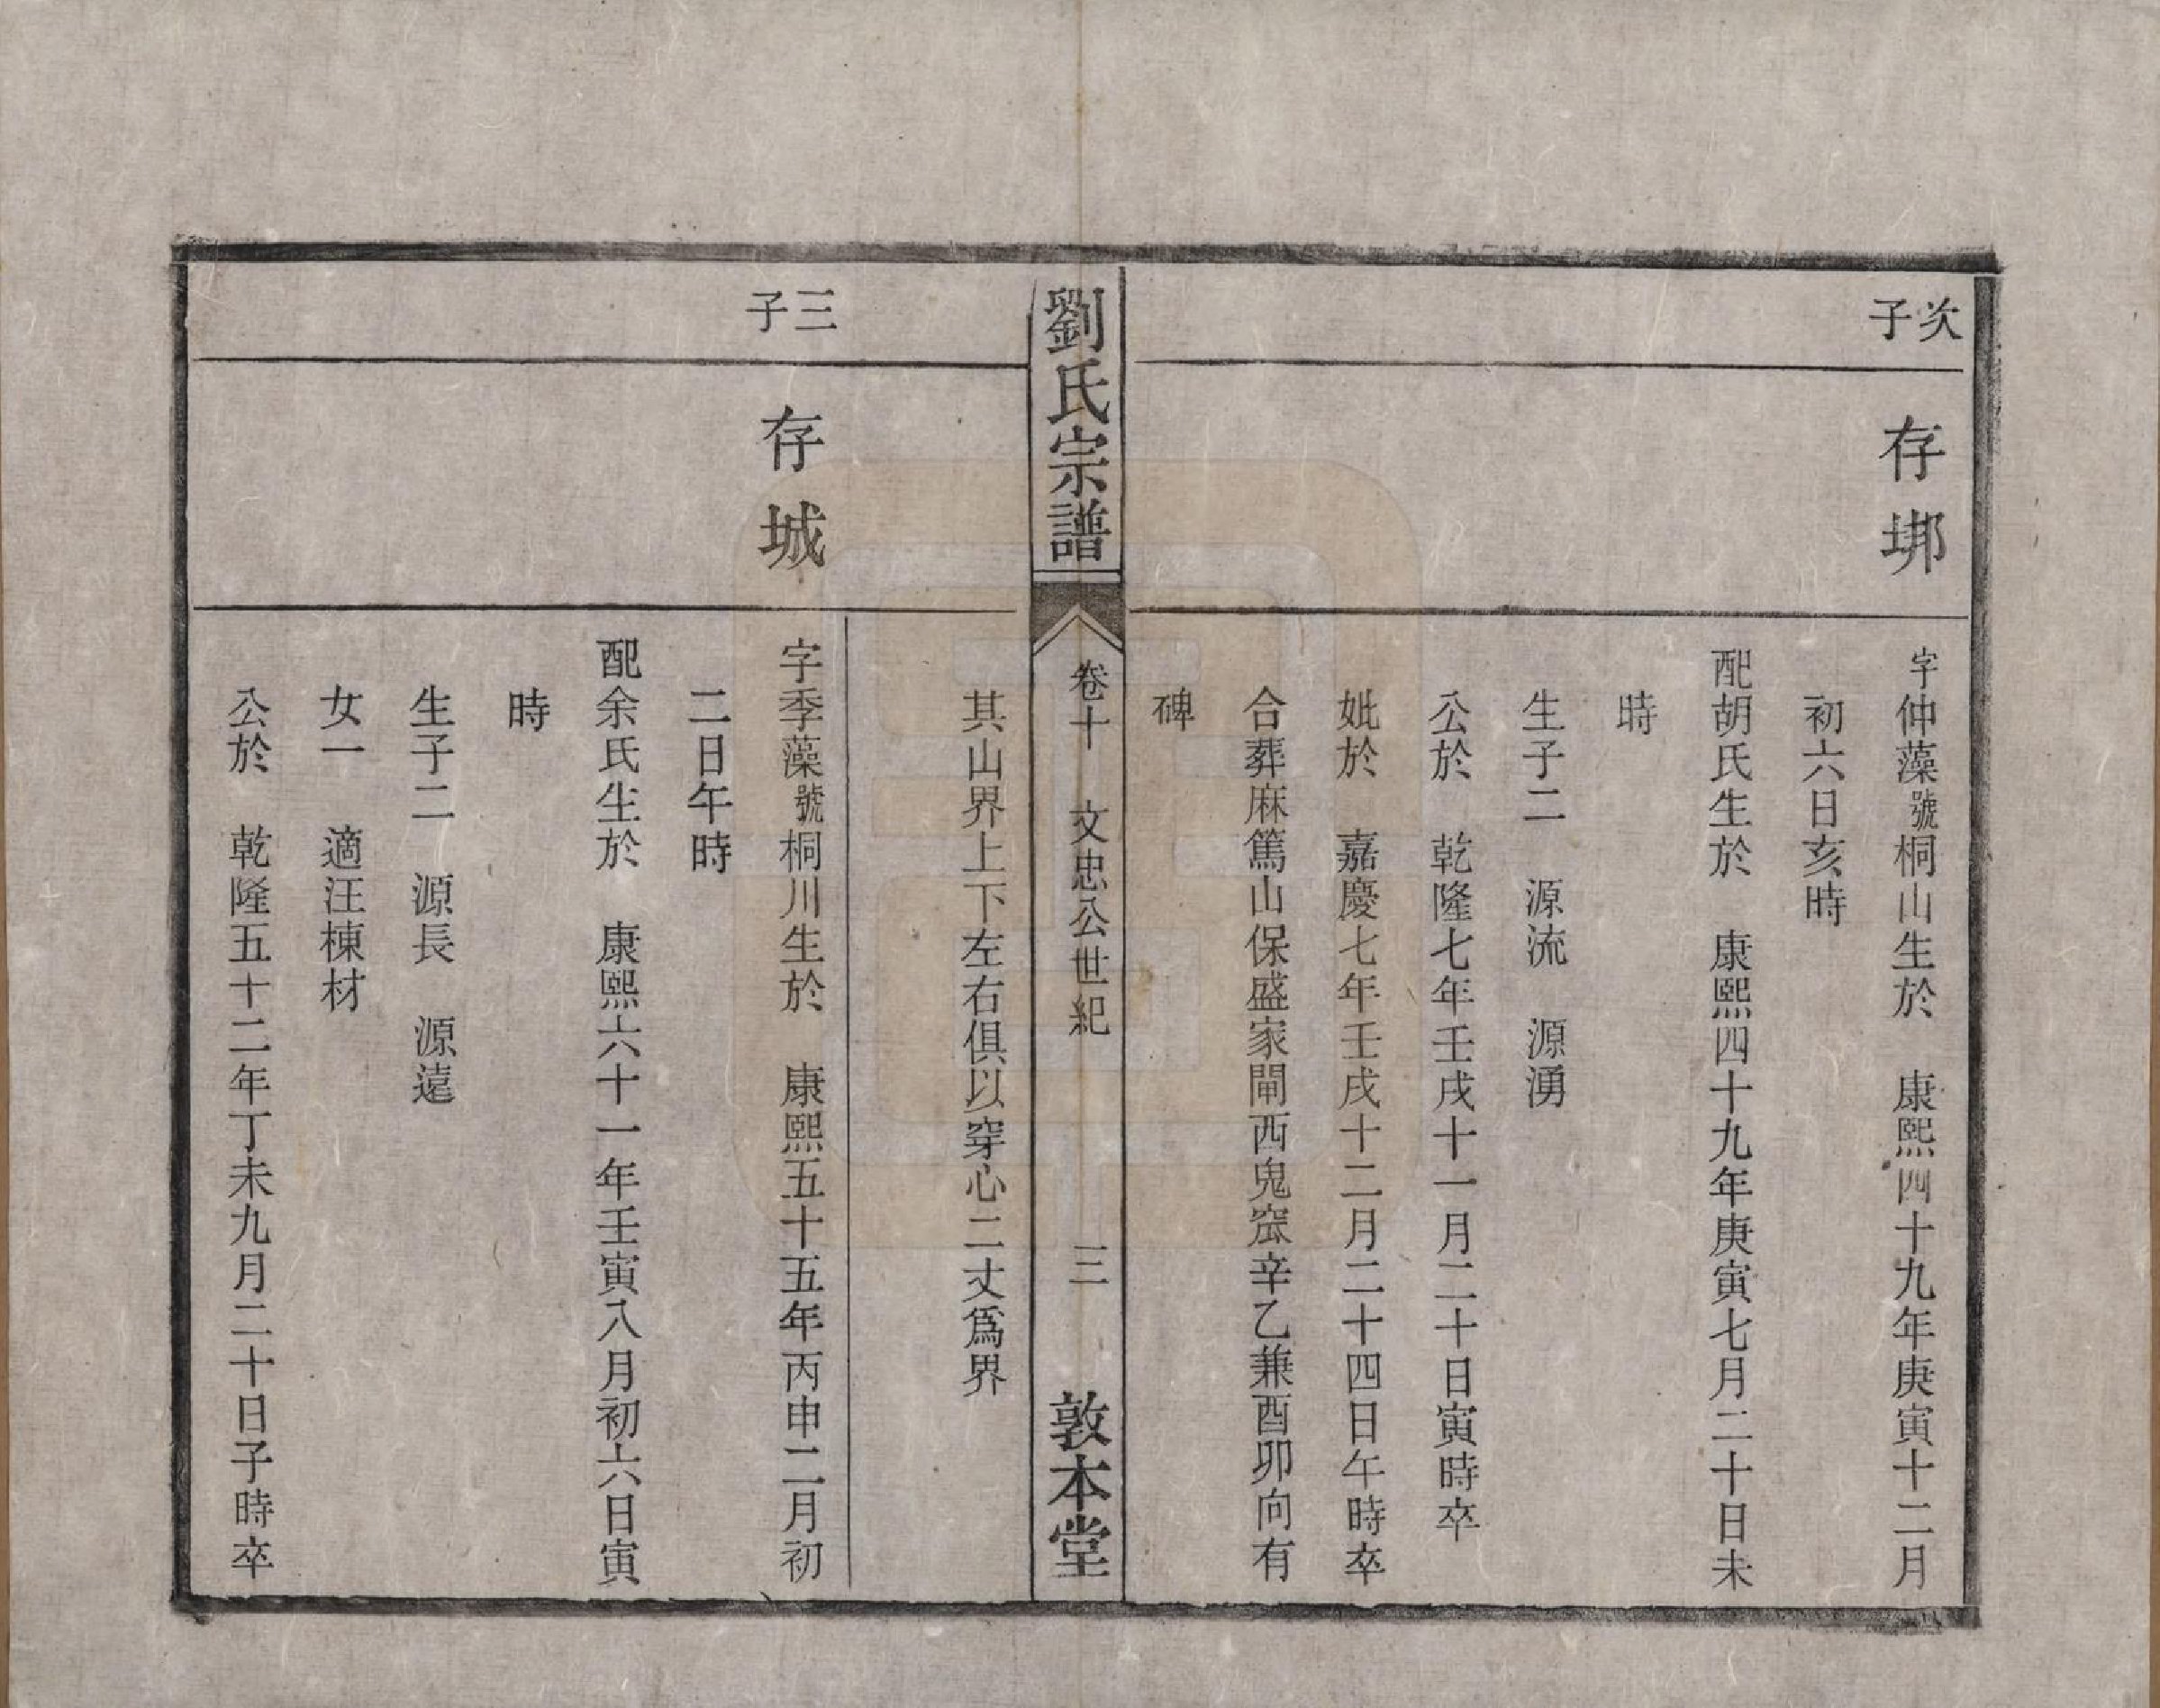 次子
存垹
字仲藻號桐山生於　康熙四十九年庚寅十二月
初六日亥時
配胡氏生於　康熙四十九年庚寅七月二十日未
時
生子二　源流　源湧
公於　乾隆七年壬戌十一月二十日寅時卒
妣於　嘉慶七年壬戌十二月二十四日午時卒
合葬麻篤山保盛家閘西鬼窊辛乙兼酉卯向有
碑
劉氏宗譜
卷十　文忠公世紀　三
敦本堂
其山界上下左右俱以穿心二丈爲界
三子
存城
字季藻號桐川生於　康熙五十五年丙申二月初
二日午時
配余氏生於　康熙六十一年壬寅八月初六日寅
時
生子二　源長　源遠
女一　適汪棟材
公於　乾隆五十二年丁未九月二十日子時卒